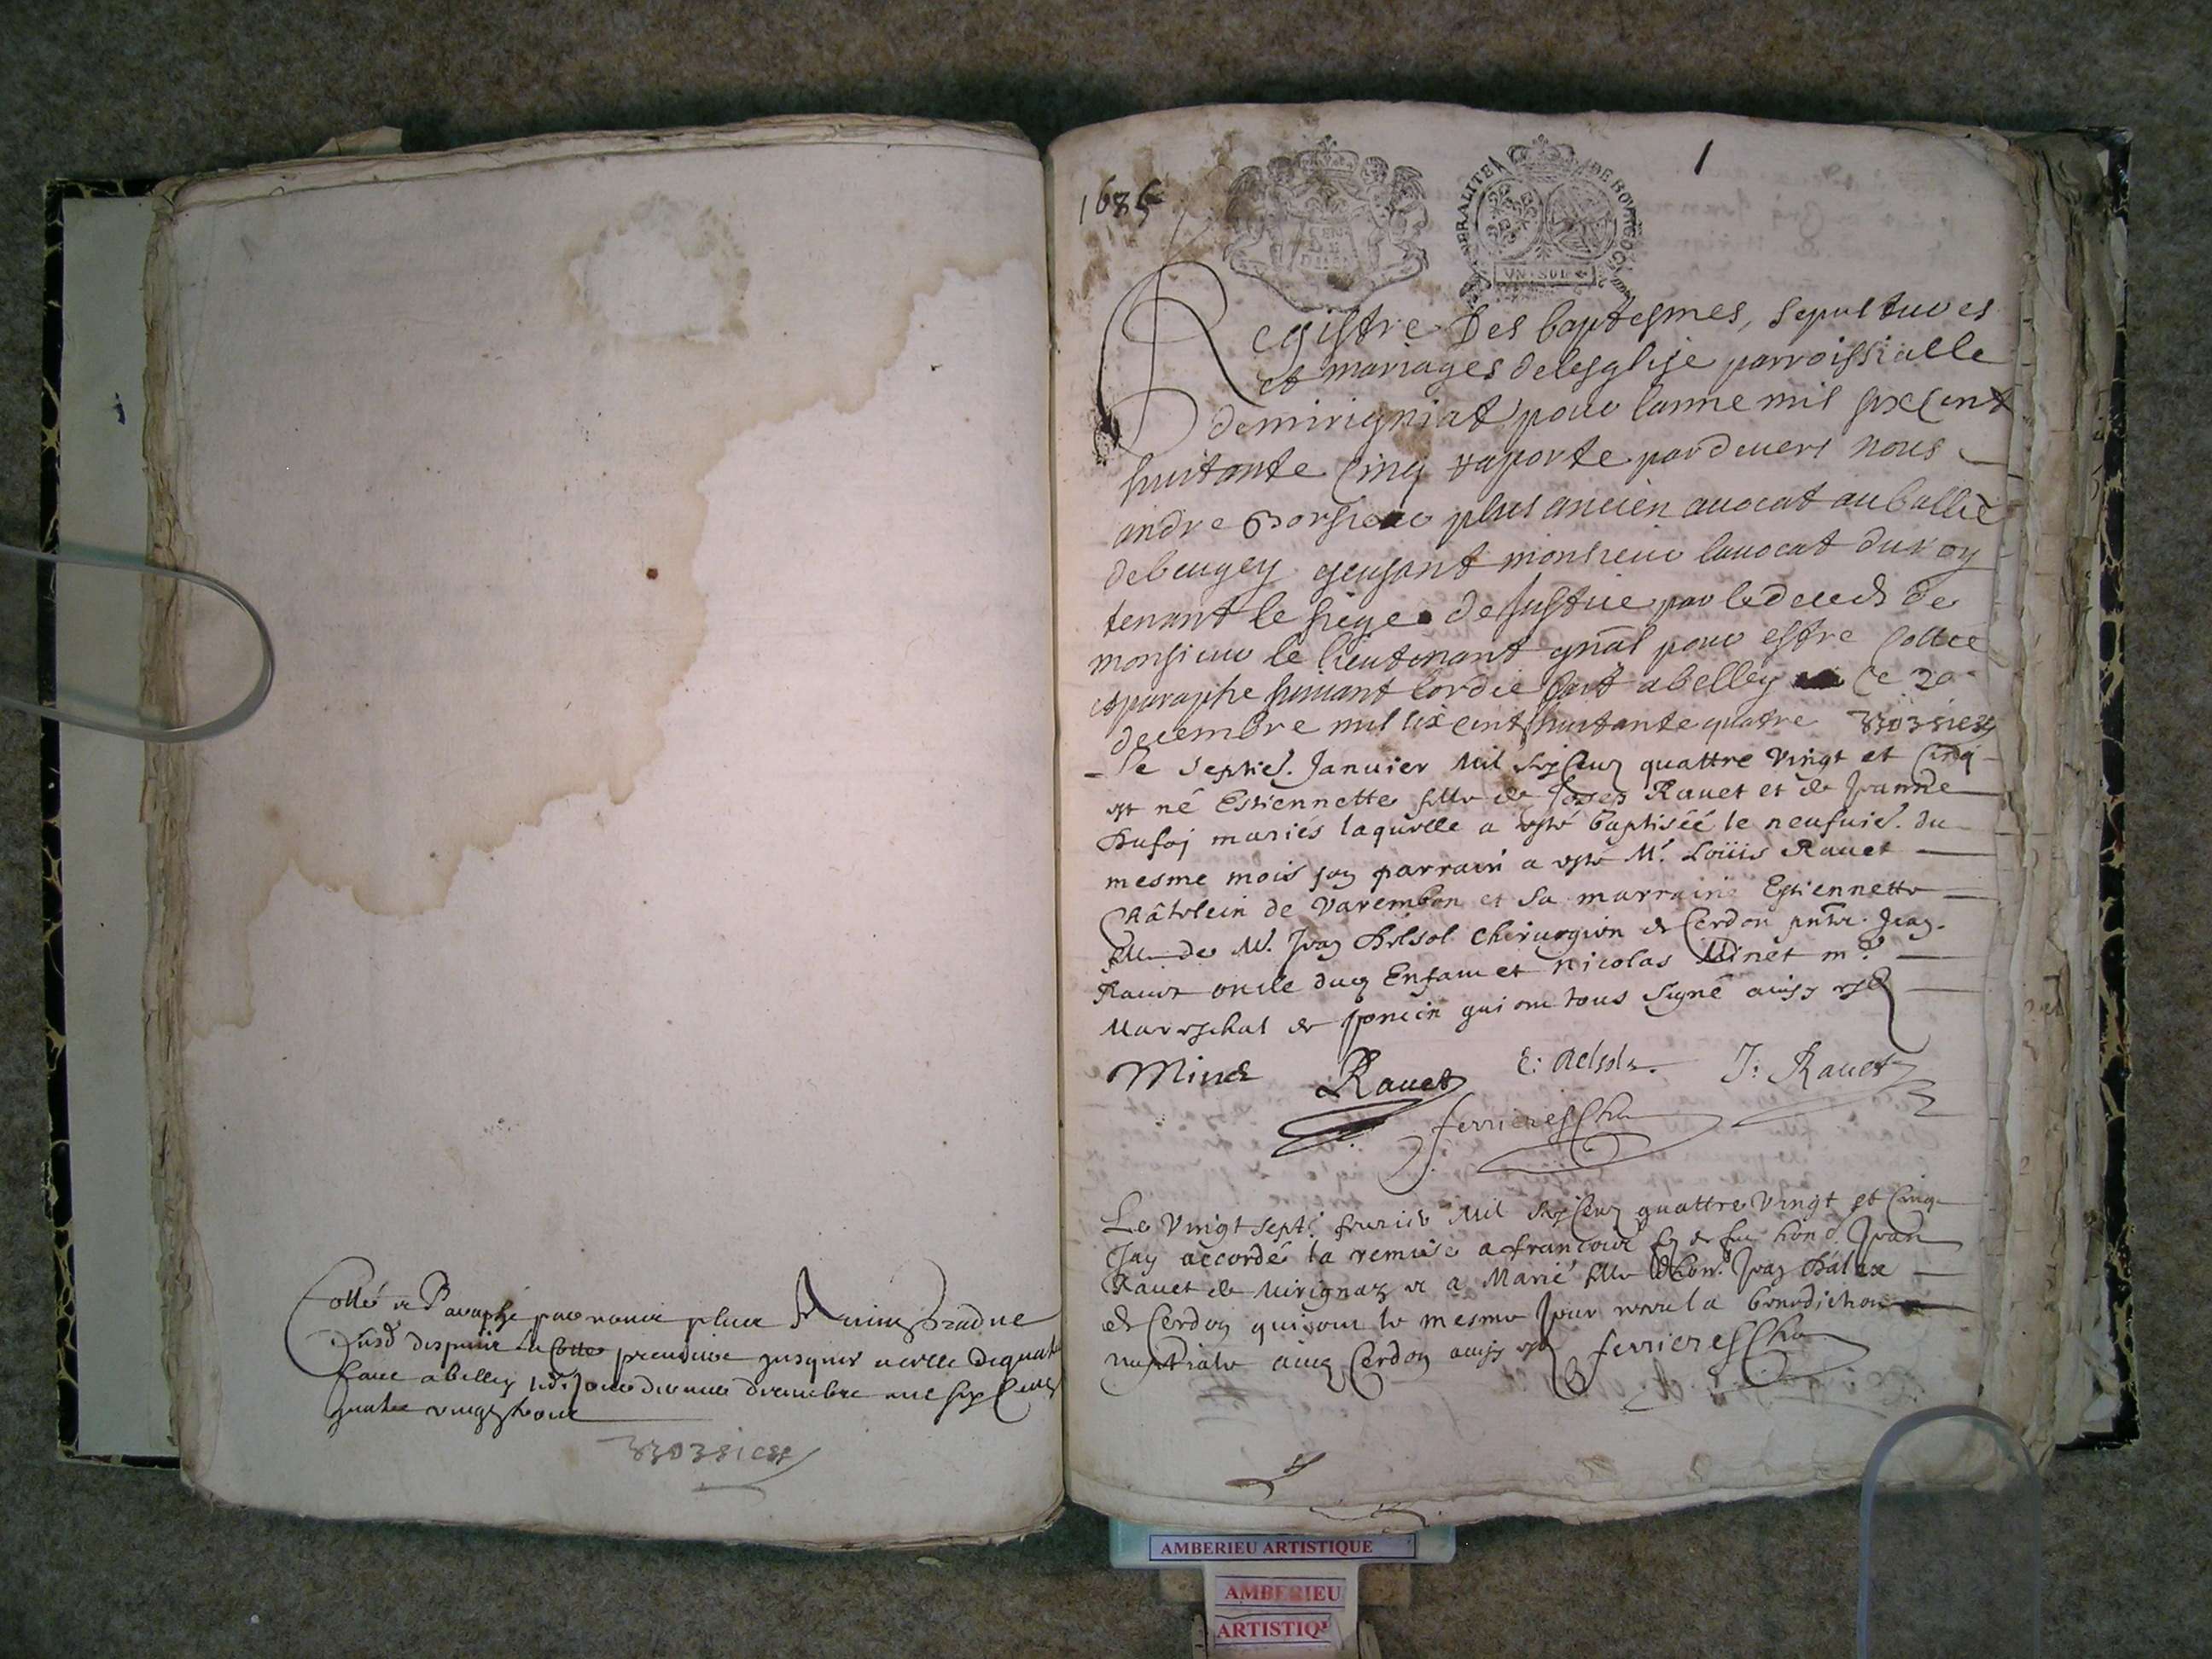 Collé et Paraphé par nous plus
jusques a celle de quat
faict a belley decembre mil six cent
quatre vingt
1685
1
GENERALITE DE BOVRGOGNE
VN SOL
Registre des baptesmes, sepultures
et mariages de lesglise parroissialle
de mirigniat pour lanne mil six cent
huitante cinq raporte pardevers nous
andre plus ancien avocat au ballié
de beugey exersant monsieur lavocat du roy
tenant le siege de justice par le deced de
monsieur le lieutenant gnal pour estre cottee
et paraphe suivant lordre fait a belley ce 20
decembre mil six cent huitante quatre
Le septie. Janvier Mil six cens quattre vingt et cinq
est né Estiennette fille de Josep Ravet et de Jeanne
mariés laquelle a esté baptisée le neufvie. du
mesme mois son parrain a esté Mr. Loüis Ravet
Châtelein de Varembon et sa marraine Estiennette
fille de Mr. Jean Chirurgien de Cerdon Jean
Ravet oncle dud Enfant et nicolas Minet me
Mareschal de poncin qui ont tous signé ainsy est
Minet Ravet E: J: Ravet
ferrieres Cha
Le Vingt sept. fevrier Mil six cens quattre vingt et cinq
Jay accordé la remise a francois fz de feu hon. Jean
Ravet de Mirignaz et a Marie fille de hon. Jean
de Cerdon qui ont le mesme Jour receu la benediction
nuptiale aud Cerdon ainsy est ferrieres Cha
AMBERIEU ARTISTIQUE
AMBERIEU
ARTISTIQU